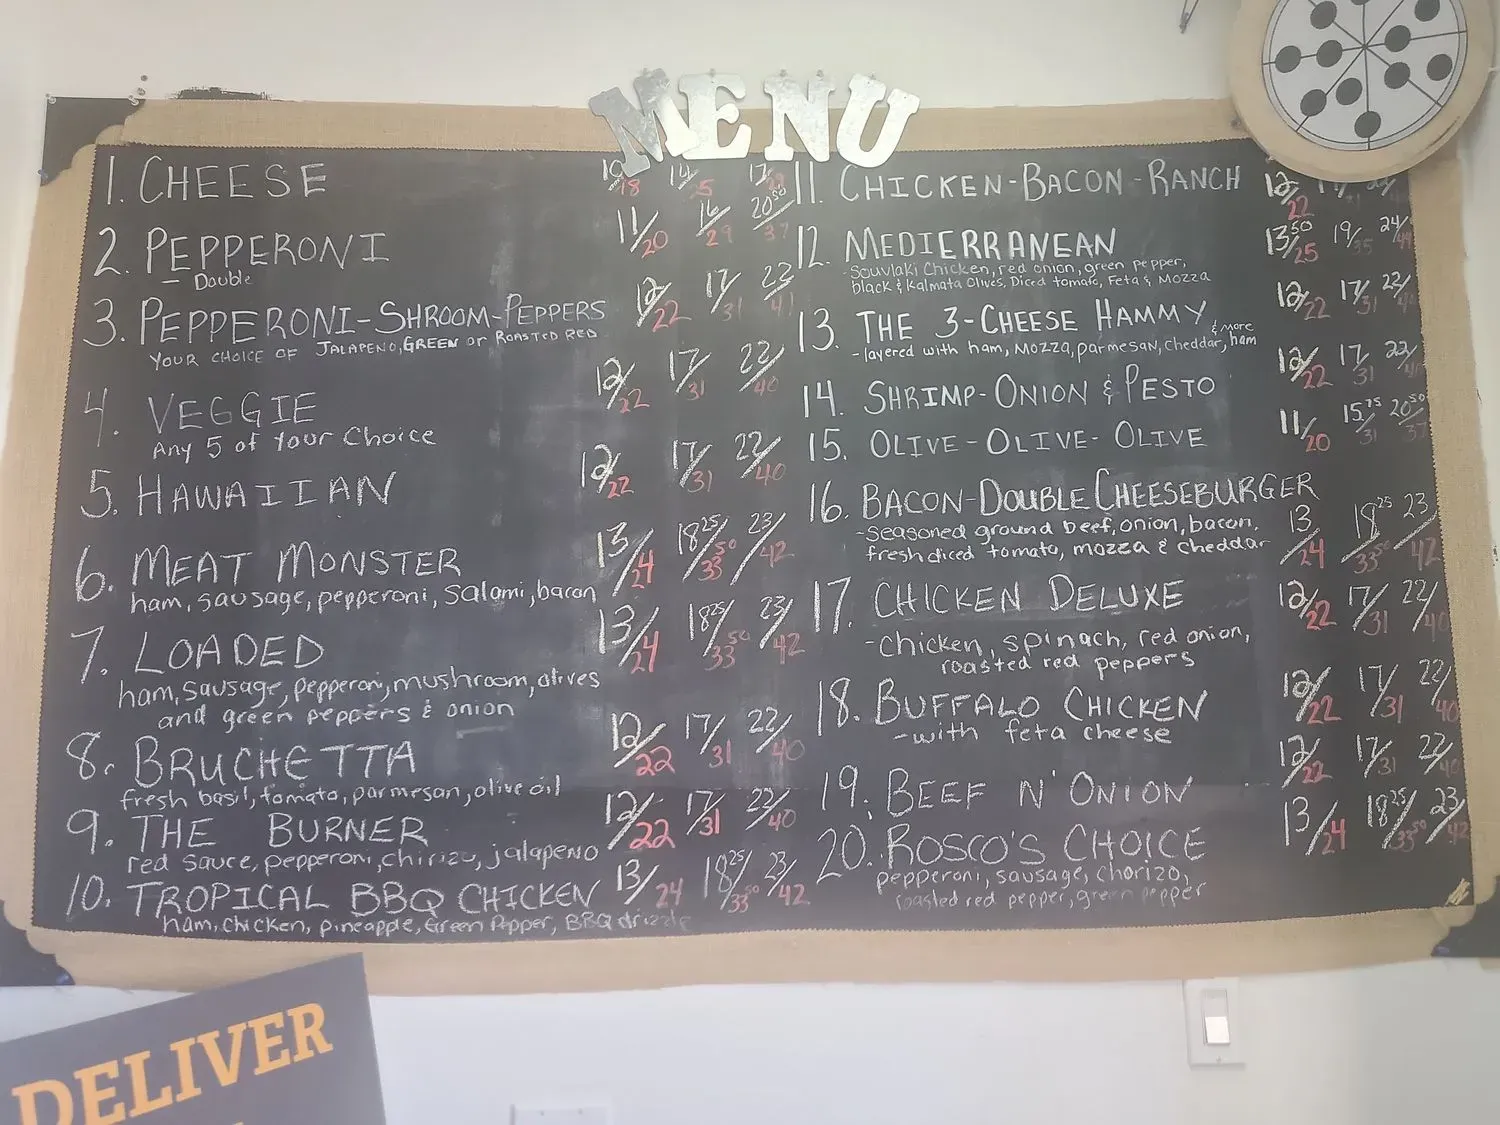 MENU
1. CHEESE 18 14 25 17
2. PEPPERONI 11/20 16/29 20⁵⁰/37
- Double
3. PEPPERONI-SHROOM-PEPPERS 12/22 17/31 22/41
YOUR CHOICE OF JALAPENO, GREEN or ROASTED RED
4. VEGGIE 12/22 17/31 22/40
Any 5 of Your Choice
5. HAWAIIAN 12/22 17/31 22/40
6. MEAT MONSTER 13/24 18²⁵/33⁵⁰ 23/42
ham, sausage, pepperoni, Salami, bacon
7. LOADED 13/24 18²⁵/33⁵⁰ 23/42
ham, sausage, pepperoni, mushroom, olives
and green peppers & onion
8. BRUCHETTA 12/22 17/31 22/40
fresh basil, tomato, parmesan, olive oil
9. THE BURNER 12/22 17/31 22/40
red sauce, pepperoni, chirizo, jalapeno
10. TROPICAL BBQ CHICKEN 13/24 18²⁵/33⁵⁰ 23/42
ham, chicken, pineapple, Green Pepper, BBQ drizzle
11. CHICKEN-BACON-RANCH 12/22
12. MEDIERRANEAN 13⁵⁰/25 19/35 24/44
- Souvlaki Chicken, red onion, green pepper,
black & Kalmata Olives, Diced tomato, Feta & Mozza
13. THE 3-CHEESE HAMMY 12/22 17/31 22/40
& more
- layered with ham, mozza, parmesan, cheddar, ham
14. SHRIMP-ONION & PESTO 12/22 17/31 22/40
15. OLIVE-OLIVE-OLIVE 11/20 15⁷⁵/31 20⁵⁰/37
16. BACON-DOUBLE CHEESEBURGER
- Seasoned ground beef, onion, bacon, 13/24 18²⁵/33⁵⁰ 23/42
fresh diced tomato, mozza & cheddar
17. CHICKEN DELUXE 12/22 17/31 22/40
- chicken, spinach, red onion,
roasted red peppers
18. BUFFALO CHICKEN 12/22 17/31 22/40
- with feta cheese
19. BEEF N' ONION 12/22 17/31 22/40
20. ROSCO'S CHOICE 13/24 18²⁵/33⁵⁰ 23/42
pepperoni, sausage, chorizo,
roasted red pepper, green pepper
DELIVER